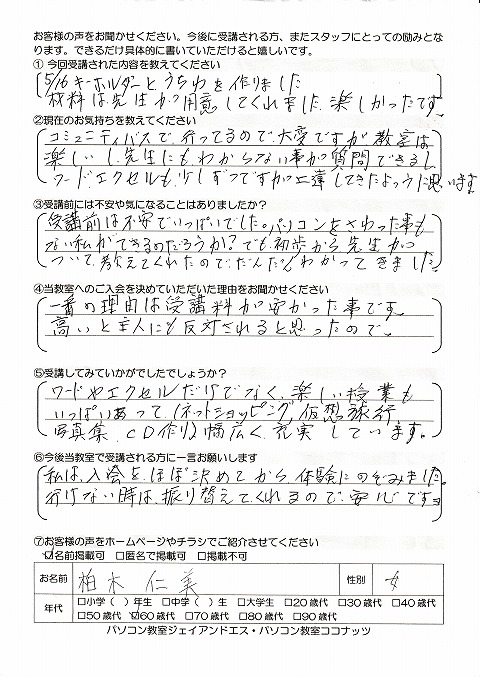 お客様の声をお聞かせください。今後に受講される方、またスタッフにとっての励みとな
ります。できるだけ具体的に書いていただけると嬉しいです。
①今回受講された内容を教えてください
5/16 キーホルダーとうちわを作りました
材料は先生が用意してくれました。楽しかったです。
②現在のお気持ちを教えてください
コミュニティバスで、行ってるので、大変ですが教室は
楽しいし、先生にもわからない事が質問できるし
ワード、エクセルも少しずつですが上達してきたように思います。
③受講前には不安や気になることはありましたか?
受講前は不安でいっぱいでした。パソコンをさわった事も
ない私ができるのだろうか?でも初歩から先生が
ついて、教えてくれたので、だんだんわかってきました。
④当教室へのご入会を決めていただいた理由をお聞かせください
一番の理由は受講料が安かった事です。
高いと主人にも反対されると思ったので。
⑤受講してみていかがでしたでしょうか?
ワードやエクセルだけでなく、楽しい授業も
いっぱいあって、(ネットショッピング、仮想旅行
写真集、CD作り)幅広く充実しています。
⑥今後当教室で受講される方に一言お願いします
私は、入会をほぼ決めてから、体験にのぞみました。
行けない時は、振り替えてくれるので、安心ですヨ
⑦お客様の声をホームページやチラシでご紹介させてください
☑名前掲載可 □匿名で掲載可 □掲載不可
お名前 柏木 仁美 性別 女
年代 □小学( )年生 □中学( )生 □大学生 □20歳代 □30歳代 □40歳代
□50歳代 ☑60歳代 □70歳代 □80歳代 □90歳代
パソコン教室ジェイアンドエス・パソコン教室ココナッツ